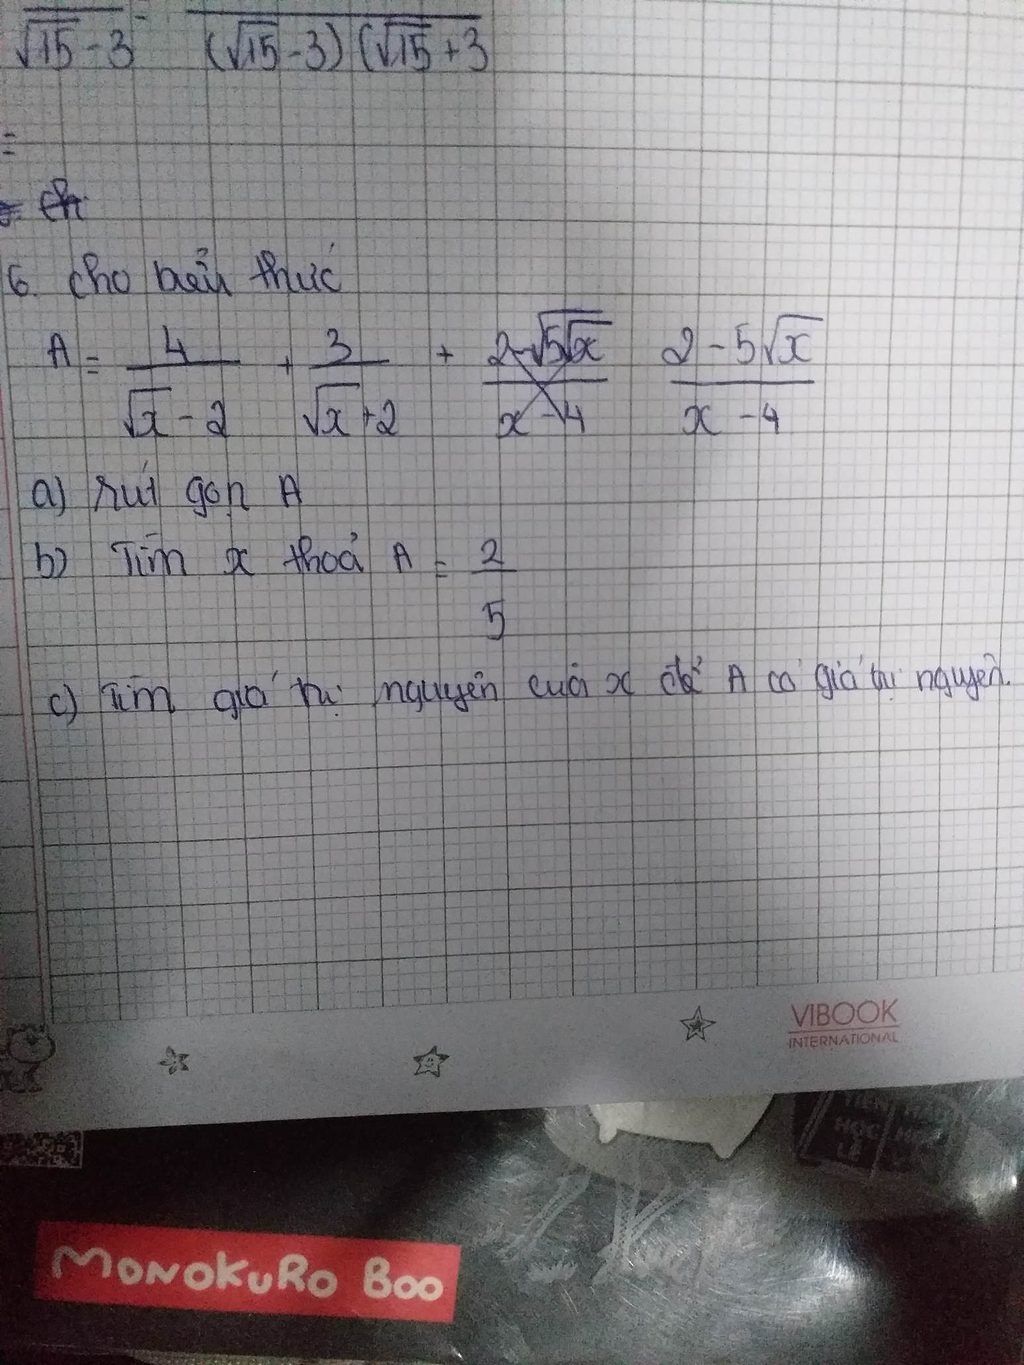 √15 - 3 = (√15 - 3)(√15 + 3
=
6. cho biểu thức
A = 4/(√x - 2) + 3/(√x + 2) + (2 - 5√x)/(x - 4)
a) rút gọn A
b) Tìm x thoả A = 2/5
c) Tìm giá trị nguyên của x để A có giá trị nguyên.
VIBOOK
INTERNATIONAL
MONOKURO BOO